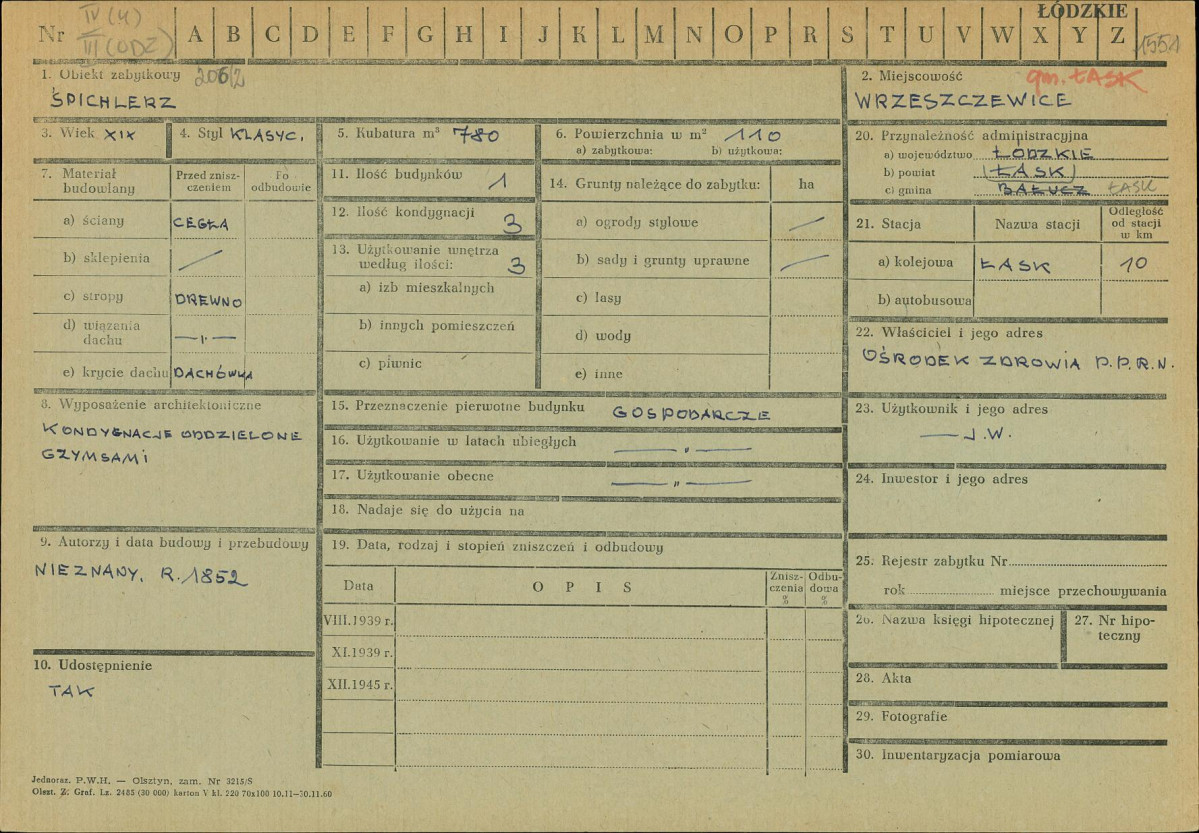 Nr IV (4) A B C D E F G H I J K L M N O P R S T U V W X Y Z
VI (ODZ)
ŁÓDZKIE
1551
1. Obiekt zabytkowy 206/2
ŚPICHLERZ
2. Miejscowość gm. ŁASK
WRZESZCZEWICE
3. Wiek XIX
4. Styl KLASYC.
5. Kubatura m³ 780
6. Powierzchnia w m² 110
a) zabytkowa: b) użytkowa:
7. Materiał budowlany
Przed znisz-
czeniem
Po
odbudowie
a) ściany CEGŁA
b) sklepienia —
c) stropy DREWNO
d) wiązania
dachu —„—
e) krycie dachu DACHÓWKA
8. Wyposażenie architektoniczne
KONDYGNACJE ODDZIELONE
GZYMSAMI
9. Autorzy i data budowy i przebudowy
NIEZNANY. R. 1852
10. Udostępnienie
TAK
11. Ilość budynków 1
12. Ilość kondygnacji 3
13. Użytkowanie wnętrza
według ilości: 3
a) izb mieszkalnych
b) innych pomieszczeń
c) piwnic
14. Grunty należące do zabytku: ha
a) ogrody stylowe —
b) sady i grunty uprawne —
c) lasy
d) wody
e) inne
15. Przeznaczenie pierwotne budynku GOSPODARCZE
16. Użytkowanie w latach ubiegłych —„—
17. Użytkowanie obecne —„—
18. Nadaje się do użycia na
19. Data, rodzaj i stopień zniszczeń i odbudowy
Data O P I S Znisz-
czenia
% Odbu-
dowa
%
VIII.1939 r.
XI.1939 r.
XII.1945 r.
20. Przynależność administracyjna
a) województwo ŁODZKIE
b) powiat (ŁASK)
c) gmina BAŁUCZ ŁASK
21. Stacja Nazwa stacji Odległość
od stacji
w km
a) kolejowa ŁASK 10
b) autobusowa
22. Właściciel i jego adres
OŚRODEK ZDROWIA P.P.R.N.
23. Użytkownik i jego adres
— J.W.
24. Inwestor i jego adres
25. Rejestr zabytku Nr
rok miejsce przechowywania
26. Nazwa księgi hipotecznej
27. Nr hipo-
teczny
28. Akta
29. Fotografie
30. Inwentaryzacja pomiarowa
Jednoraz. P.W.H. — Olsztyn, zam. Nr 3215/S
Olszt. Z: Graf. Lz. 2485 (30 000) karton V kl. 220 70x100 10.11—30.11.60